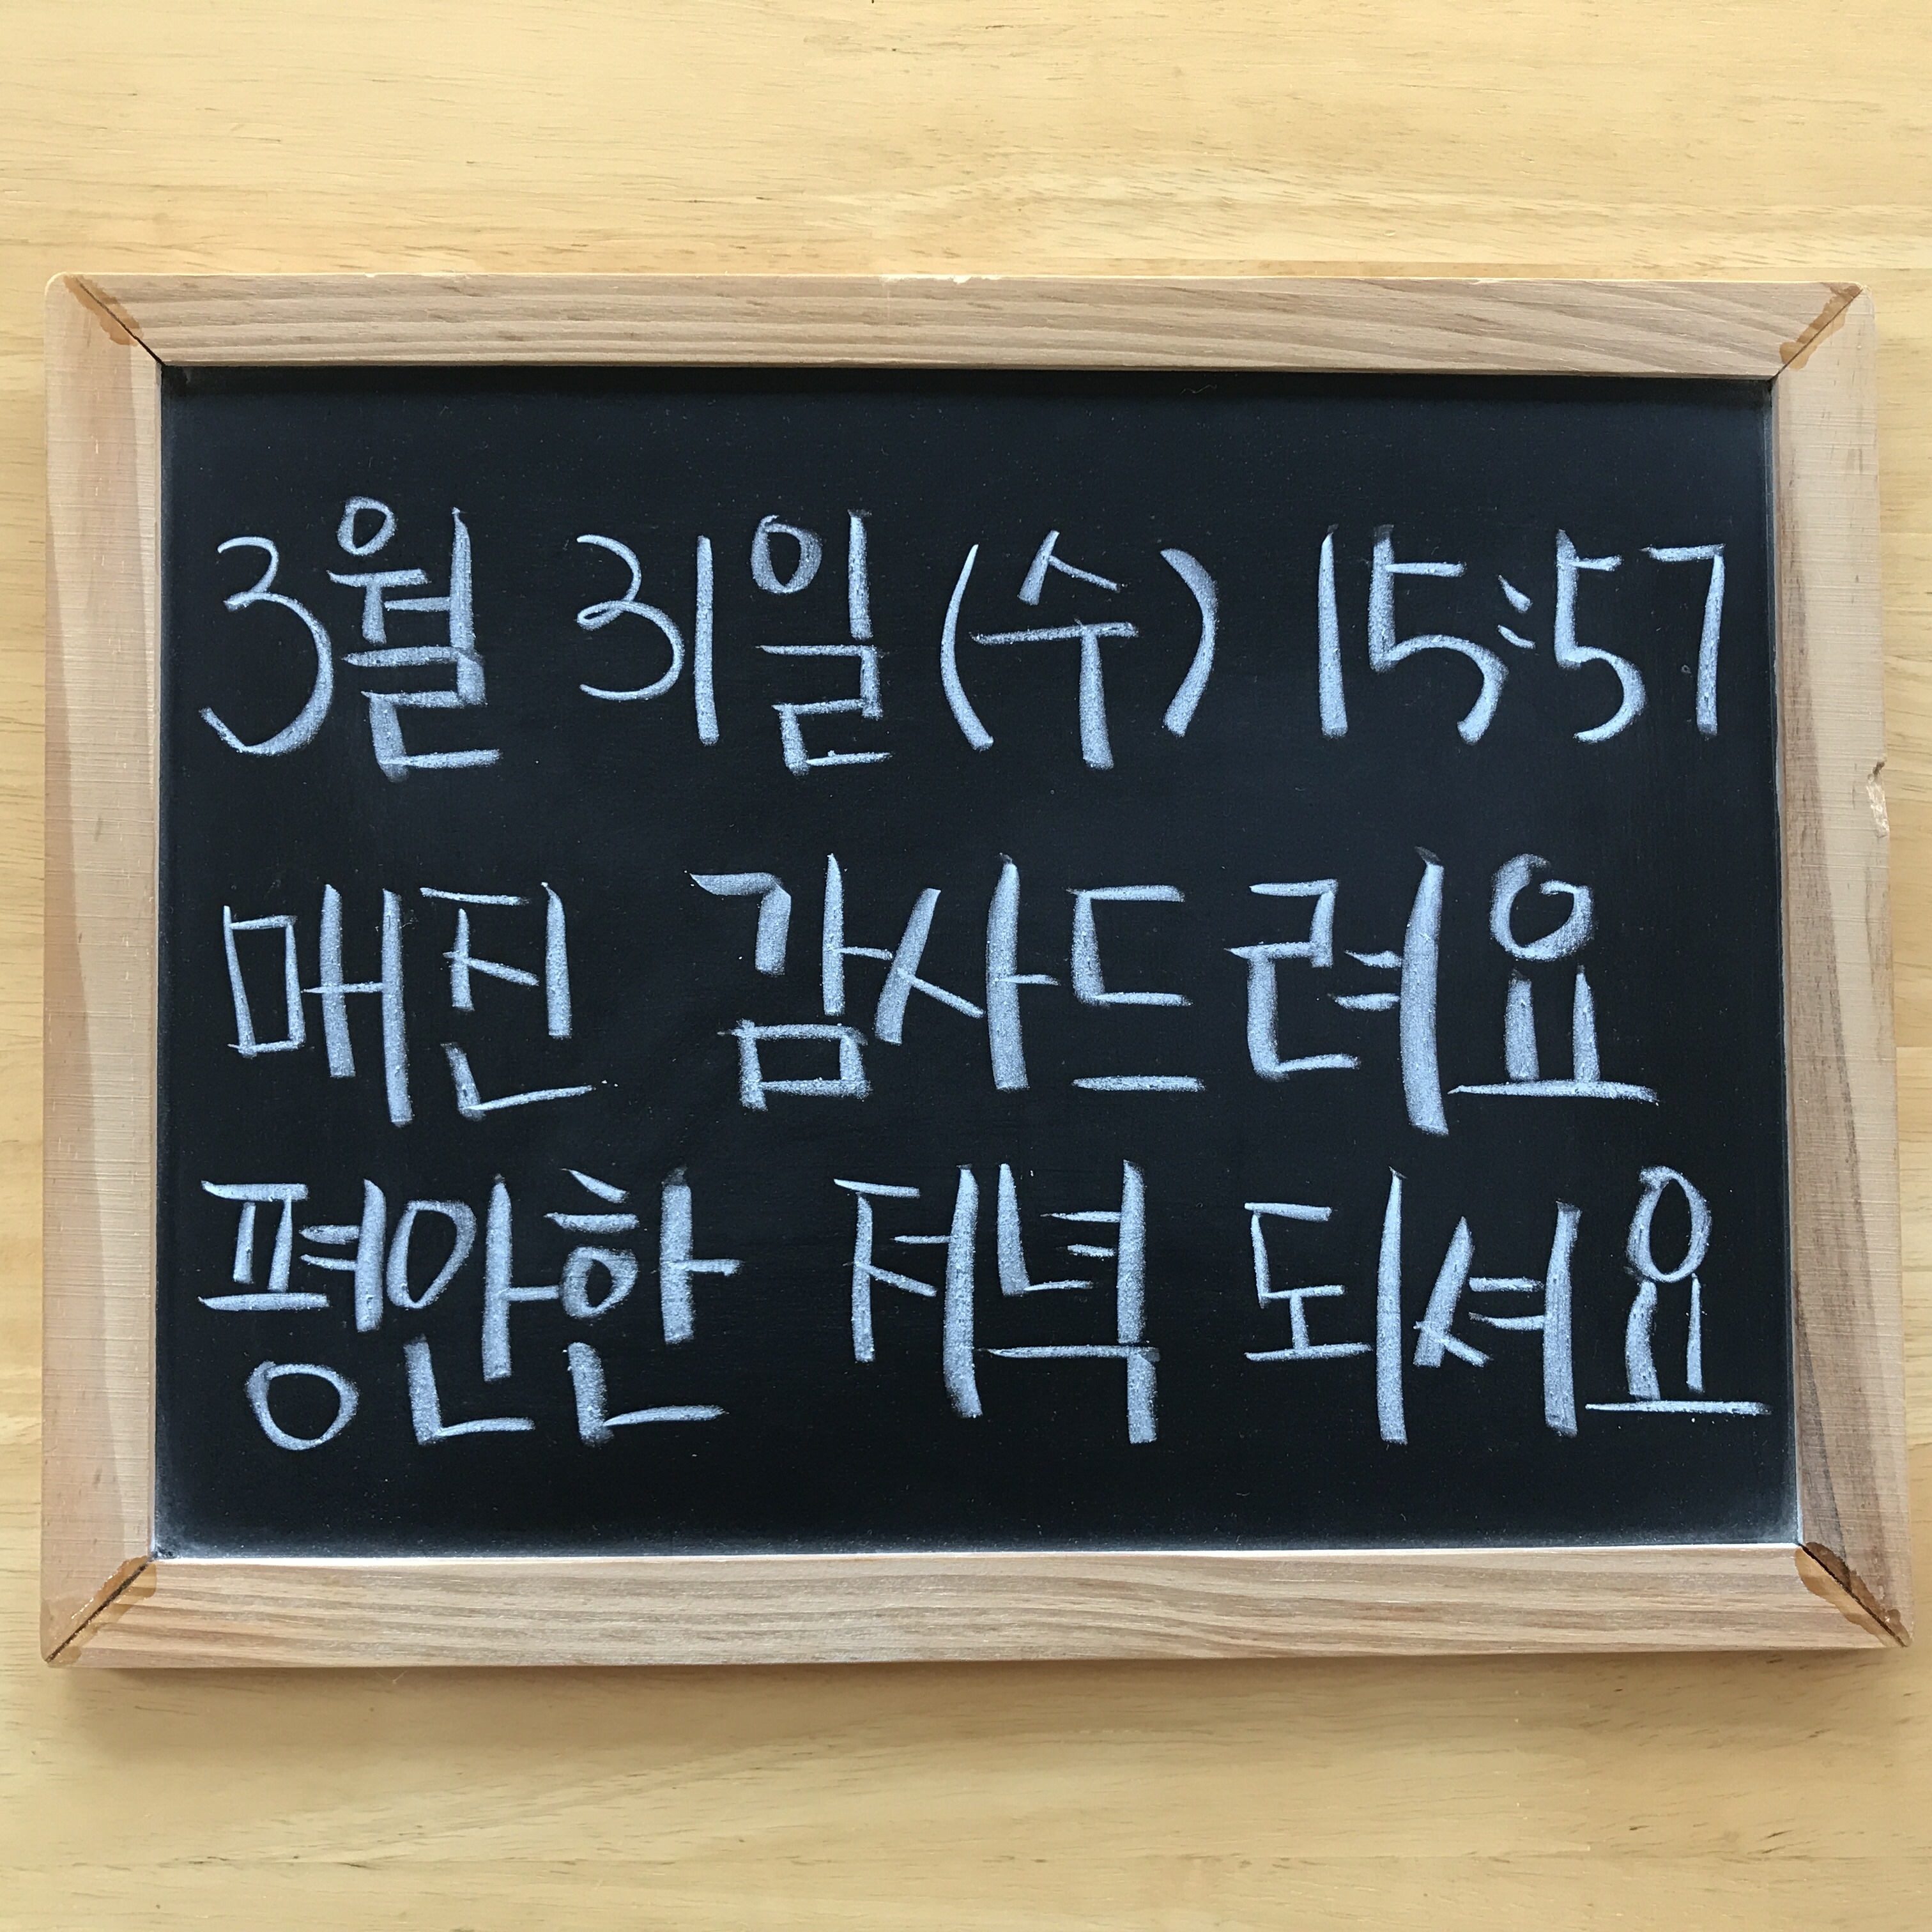 3월 31일(수) 15:57
매진 감사드려요
평안한 저녁 되셔요